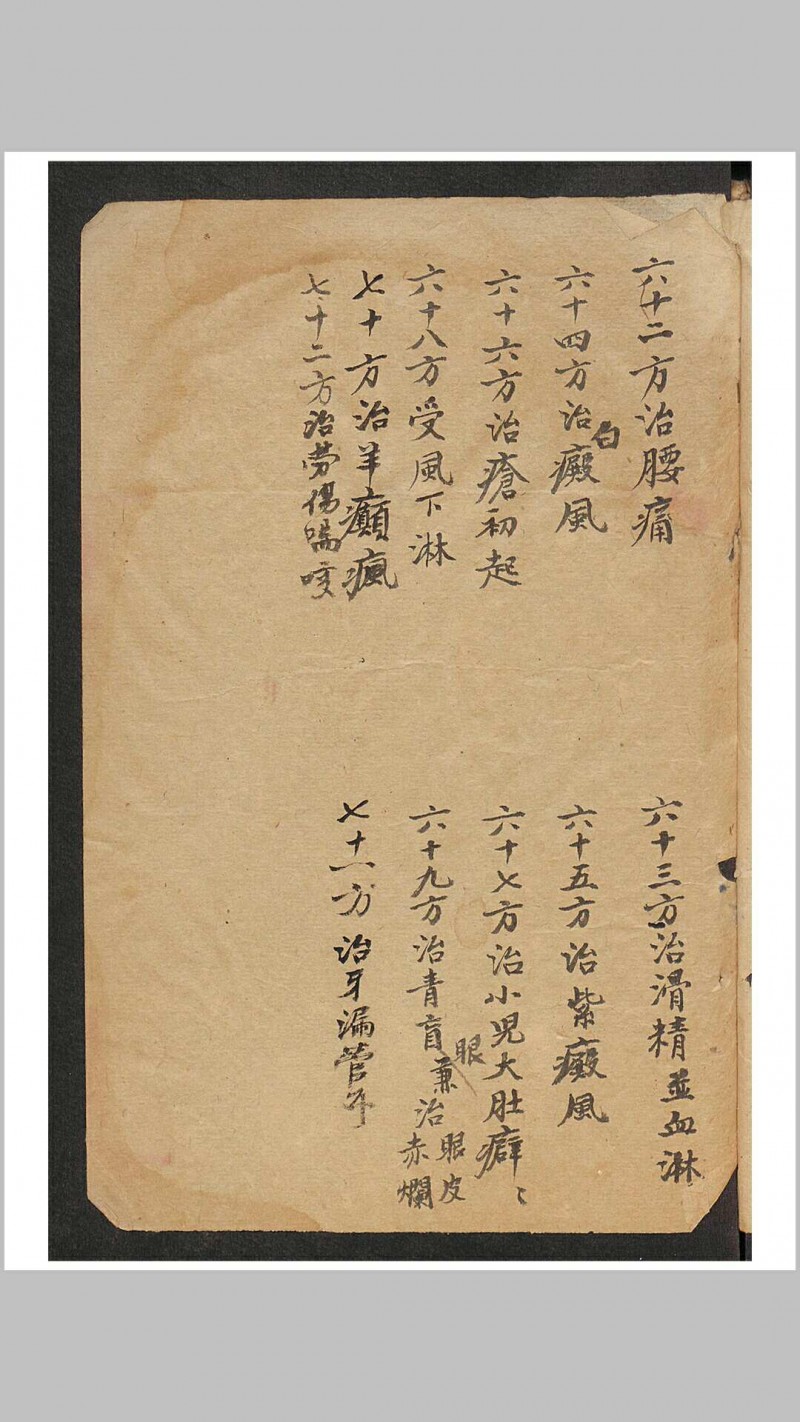 六十二方治腰痛
六十三方治滑精並血淋
六十四方治白癜風
六十五方治紫癜風
六十六方治瘡初起
六十七方治小児大肚癖〻
六十八方受風下淋
六十九方治青盲眼兼治眼皮赤爛
七十方治羊癲瘋
七十一方治牙漏管
七十二方治勞傷喘咳